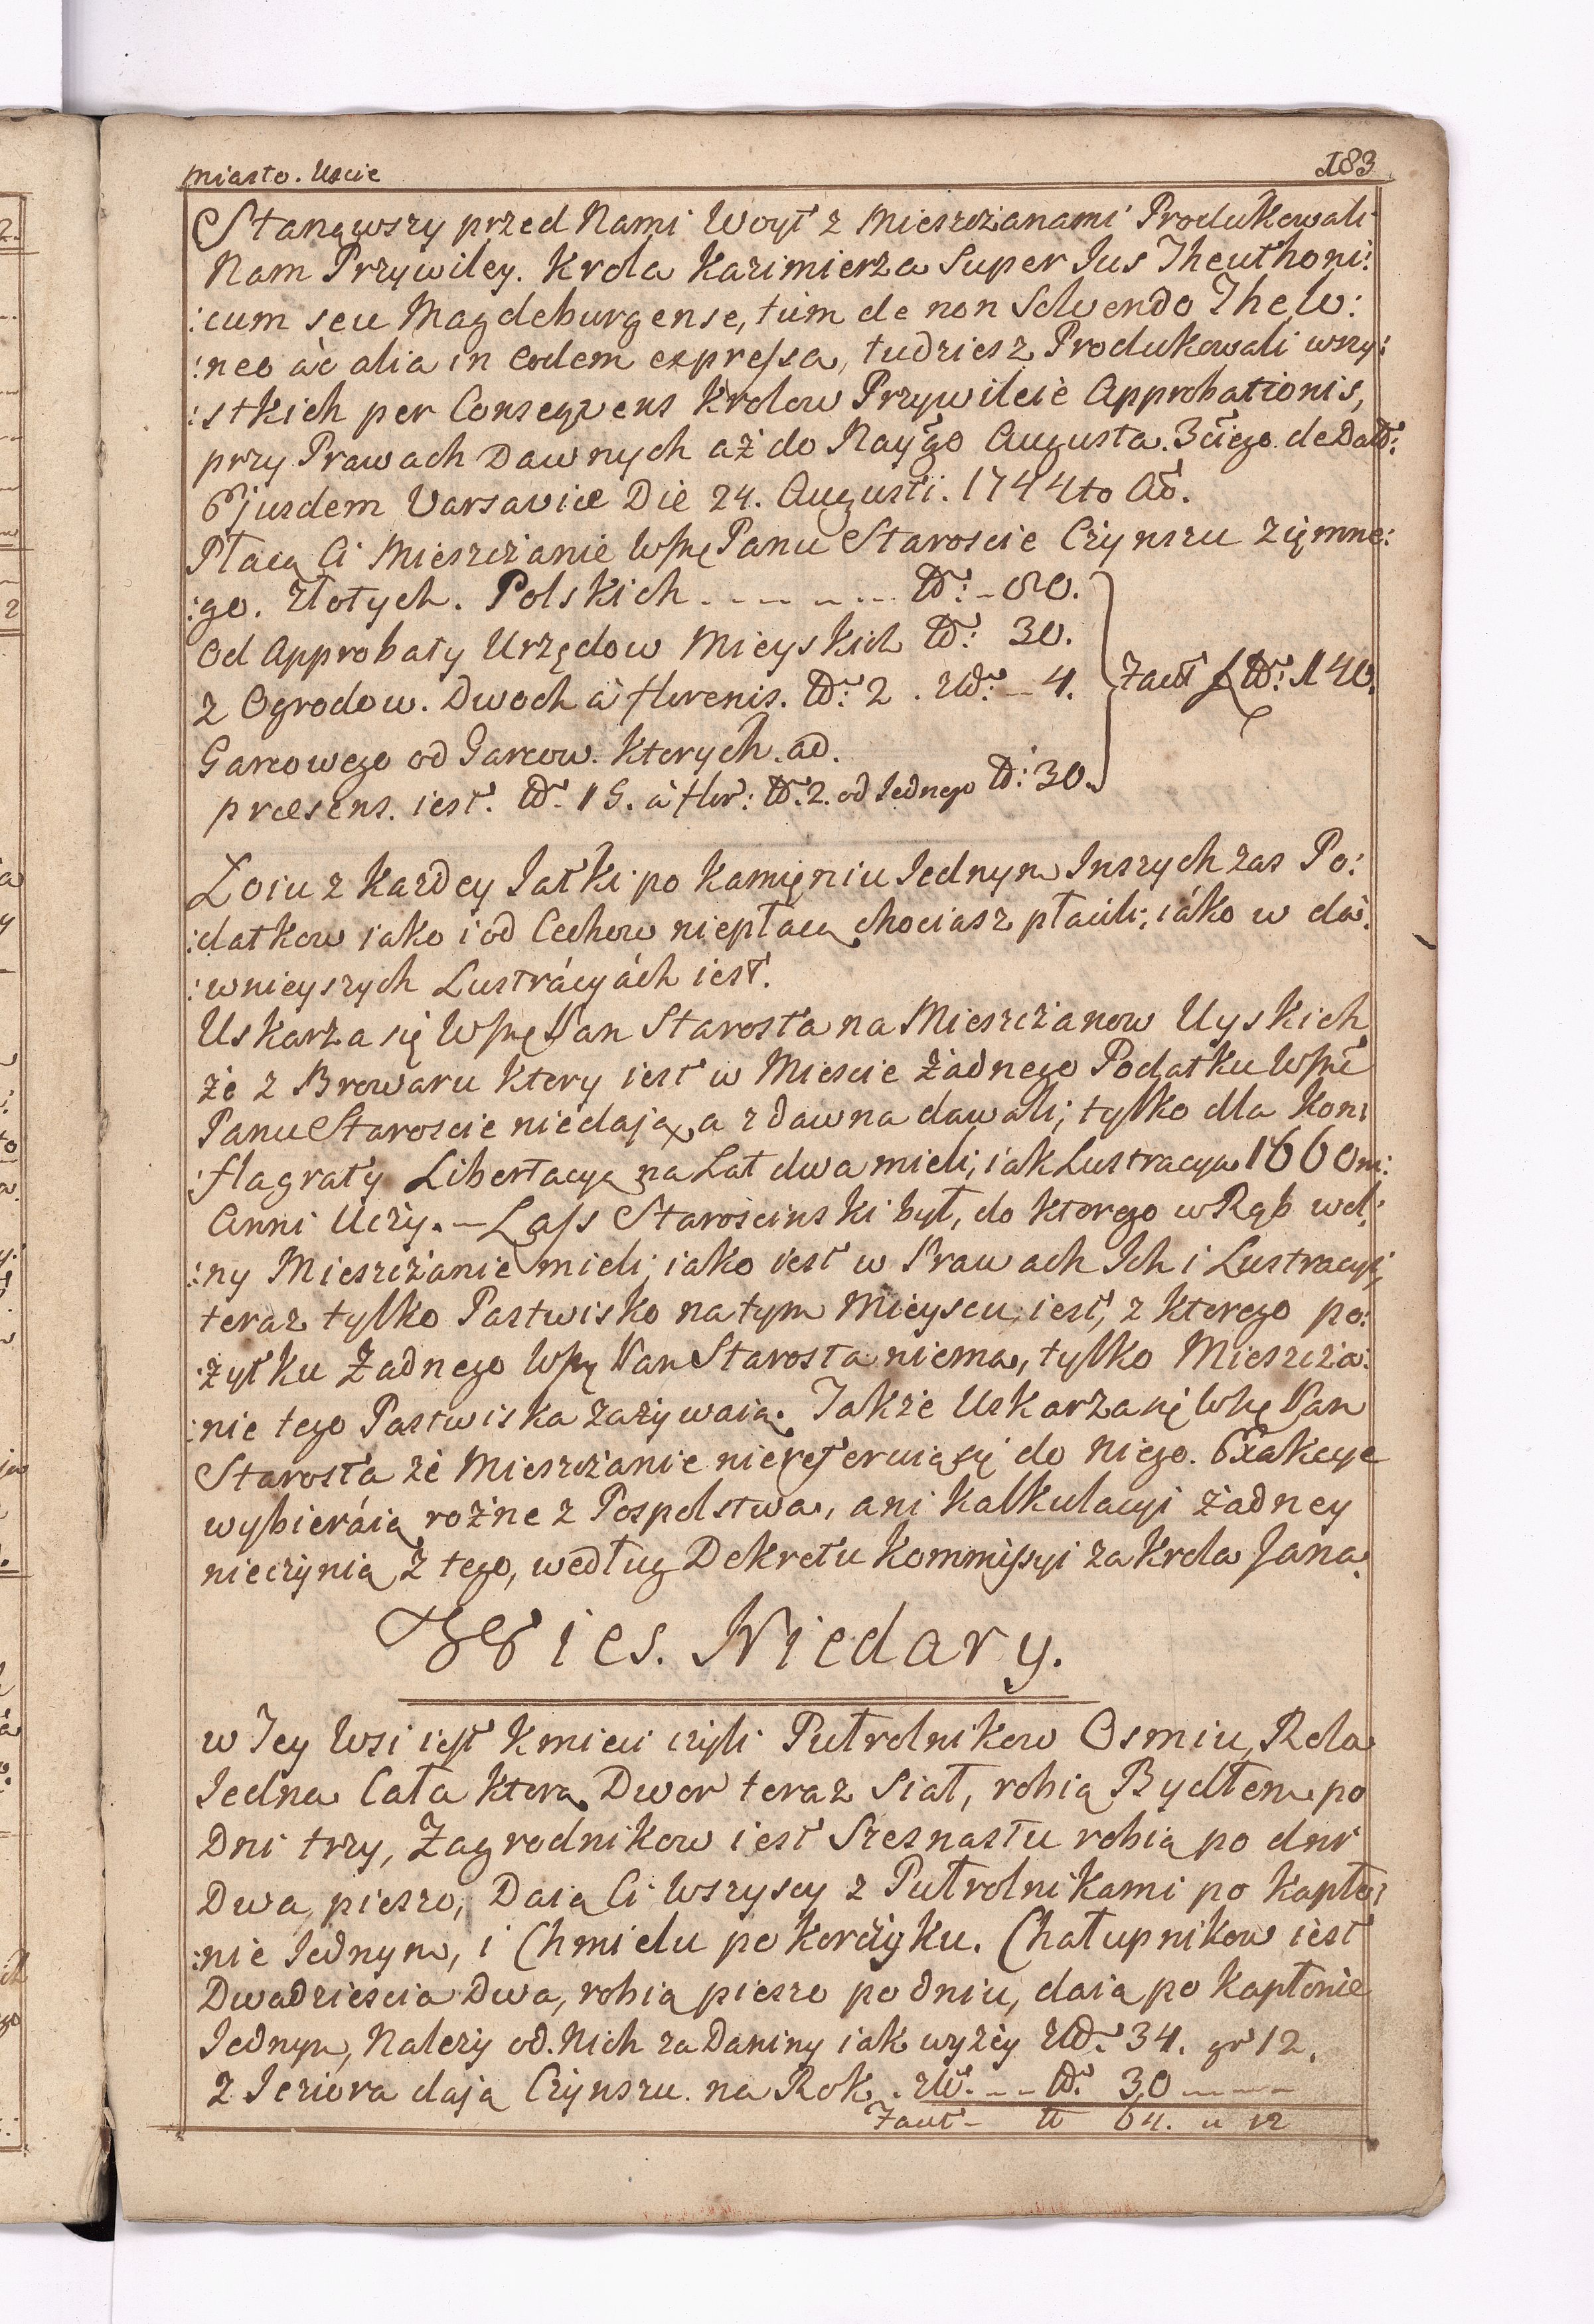 miasto. Uscie
183
Stanąwszy przed Nami Woyt z Miesczianami Produkowali
Nam Przywiley. Krola Kazimierza Super Ius Theuthoni:
:cum seu Magdeburgense, tum de non Solvendo Thelo:
:neo ac alia in Eodem expressa, tudziesz Produkowali wszy:
:stkich per Conseqvens Krolow Przywileie Approbationis,
przy Prawach Dawnych aż do Naygo Augusta. 3ciego. de Dato:
Ejusdem Varsaviæ Die 24. Augusti. 1744to Ao.
Płacą Ci Miesczianie Wnę Panu Staroscie Czynszu zięmne:
:go. Złotych. Polskich . . . . . . tt: - 80.
Od Approbaty Urzędow Mieyskich tt: 30.
z Ogrodow. Dwoch a fflorenis. tt: 2. - 4.
Garcowego od Garcow. ktorych. ad.
præsens. iest. tt. 15. a fflor: tt: 2. od Iednego tt: 30.
Łoiu z Kazdey Iatki po Kamięniu Iednym Inszych zas Po:
:datkow iako i od Cechow niepłacą chociasz płacili; iáko w da:
:wnieyszych Lustrácyách iest.
Uskarza się Wnę Pan Starosta na Miesczianow Uyskich
że z Browaru ktory iest w Miescie żadnego Podatku Wnę
Panu Staroscie niedają, a z dawna dawali; tylko dla Kon:
:flagraty Libertacyą na Lat dwa mieli; iak Lustracya 1660 m:
Anni Uczy. - Lass Staroscinski był, do ktorego wRąb wol:
:ny Miesczianie mieli; iako iest w Prawach Ich i Lustracyi,
teraz tylko Pastwisko na tym Mieyscu iest, z ktorego po:
:żytku Żadnego Wnę Pan Starosta niema, tylko Mieszcza:
:nie tego Pastwiska zażywaią. Także Uskarza się Wnę Pan
Starosta że Miesczianie niereferuią się do niego. Exakcye
wybieráią rożne z Pospolstwa, ani Kalkulacyi żadney
nieczynią z tego, według Dekretu Kommissyi za Krola Jana.
Wies. Niedary.
w Tey Wsi iest Kmieci czyli Pułrolnikow Osmiu, Rola
Iedna Cała ktorą Dwor teraz siał, robią Bydłem po
Dni trzy, Zagrodnikow iest Szesnastu robią po dni
Dwa pieszo, Daią Ci wszyscy z Pułrolnikami po Kapło:
:nie Iednym, i Chmielu po Korczyku. Chałupnikow iest
Dwadziescia Dwa, robią pieszo po dniu, daią po Kapłonie
Iednym, Należy od. Nich za Daniny iak wyżey 34. gr 12.
z Ieziora dają Czynszu. na Rok. 30
64. 12